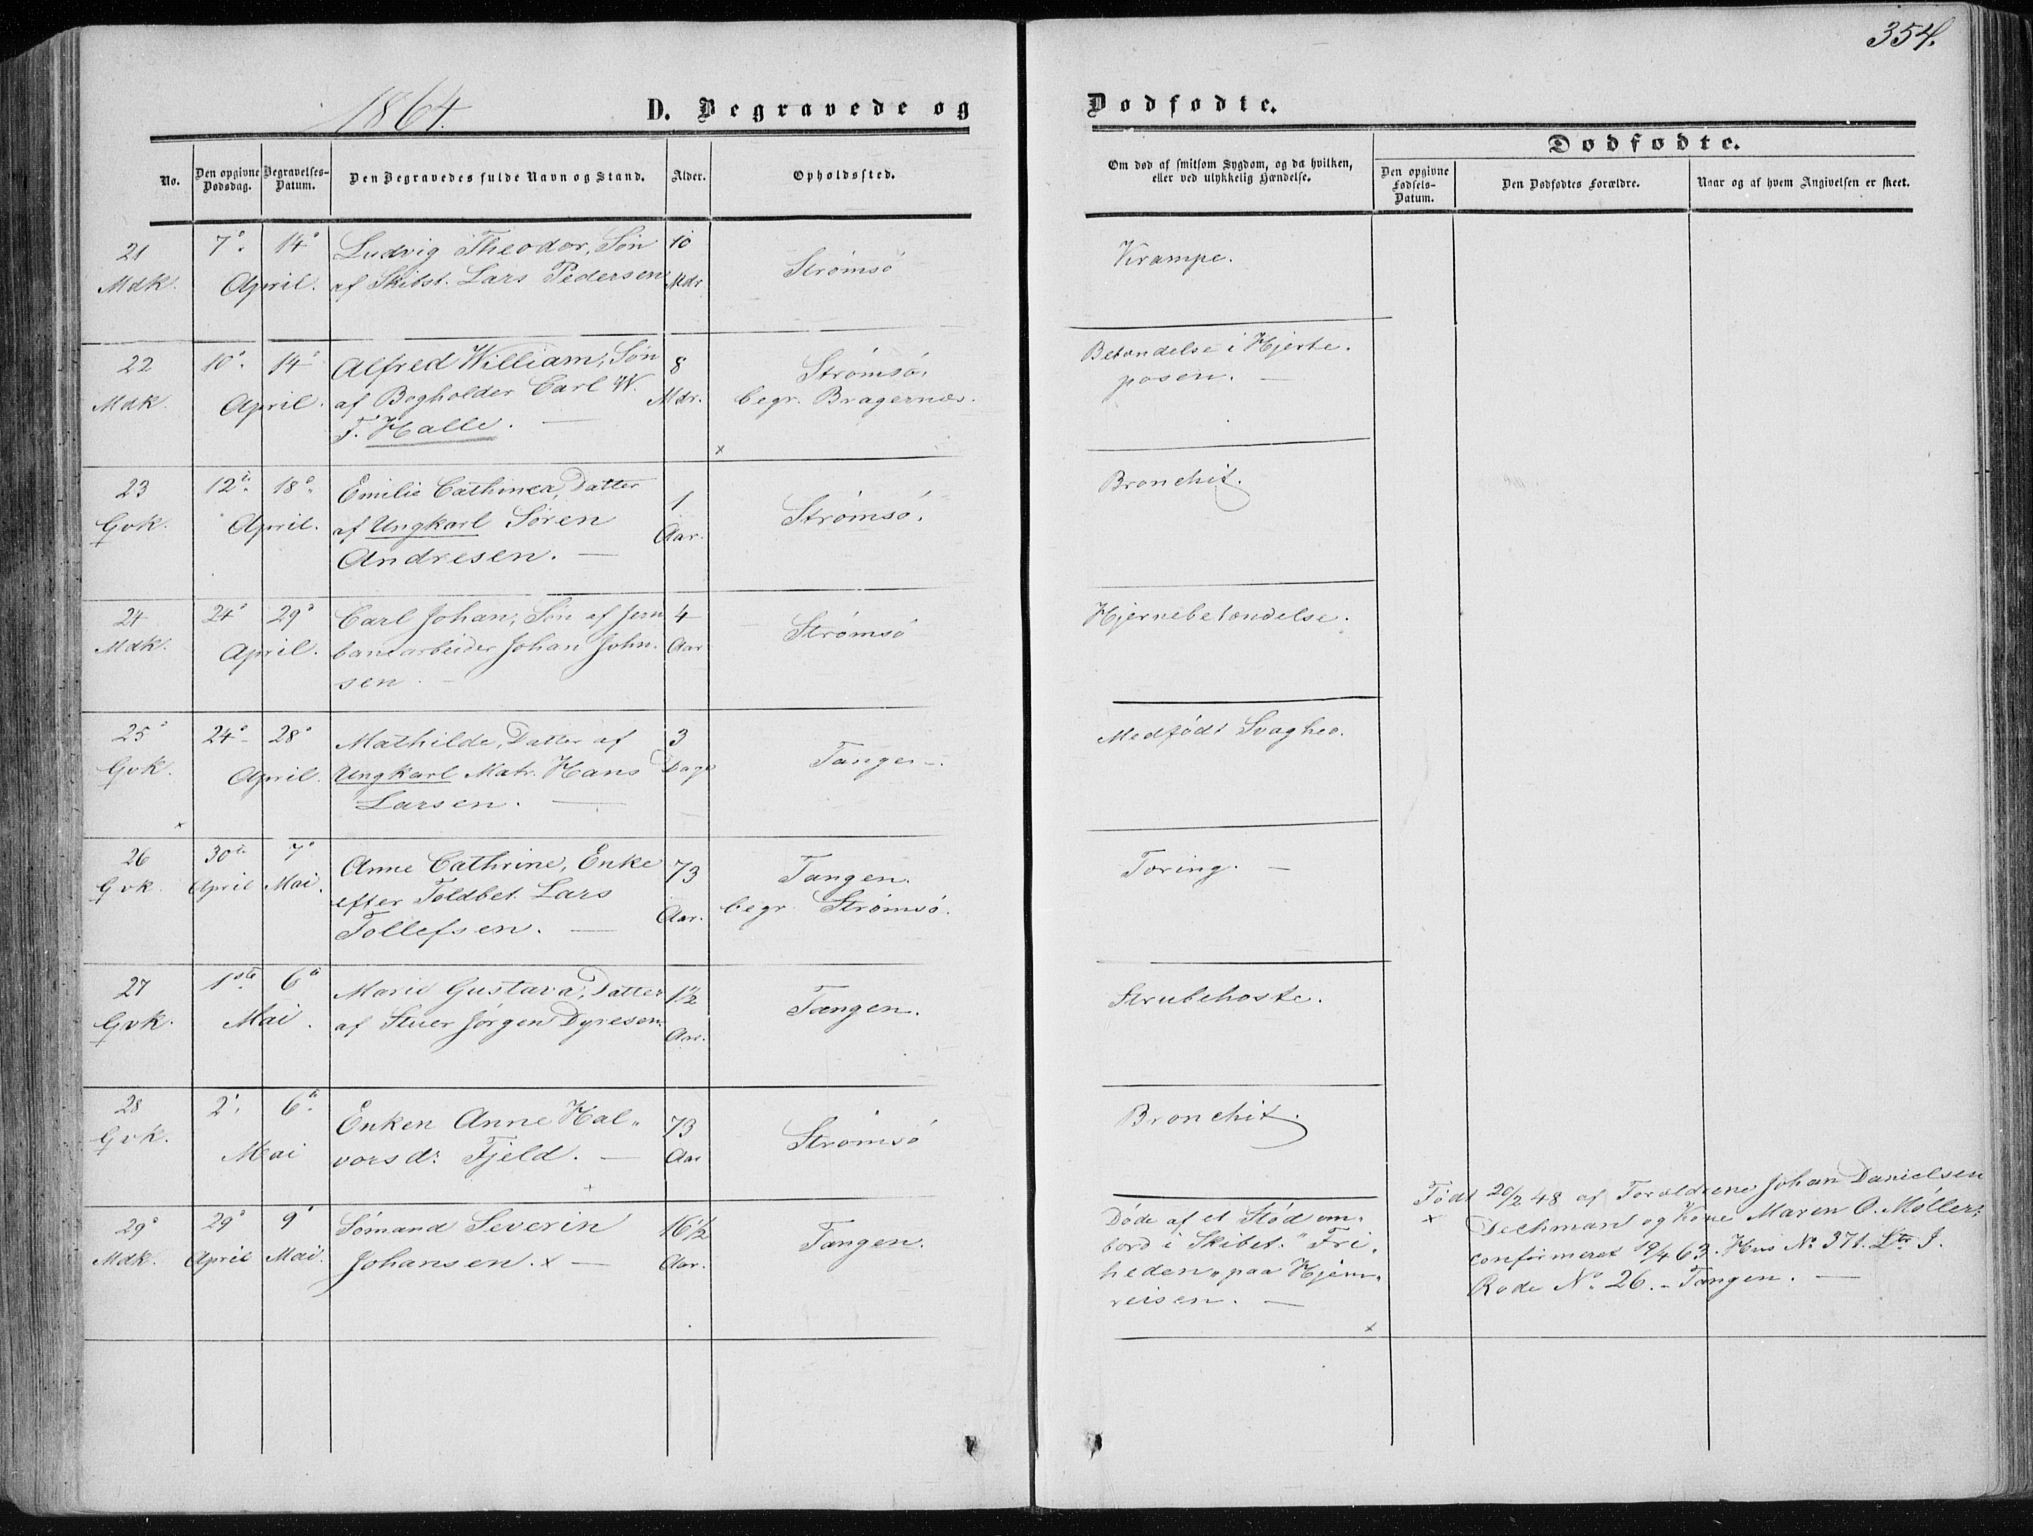 354.
1864. D. Begravede og Dødfødte.
No.
Den opgivne Dødsdag.
Begravelses-Datum.
Den Begravedes fulde Navn og Stand.
Alder.
Opholdssted.
Om død af smitsom Sygdom, og da hvilken,
eller ved ulykkelig Hændelse.
Dødfødte.
Den opgivne Fødsels-Datum.
Den Dødfødtes Forældre.
Naar og af hvem Angivelsen er skeet.
21 7de 14de Ludvig Theodor, Søn 10
Mdk. April. af Skibst. Lars Pedersen Mdr. Strømsø
Krampe.
22 10de 14de Alfred William, Søn 8 Strømsø,
Mdk. April. af Bogholder Carl W. Mdr. begr. Bragernæs.
F. Halle. — x
Betændelse i Hjerte-
posen. —
23 12te 18de Emilie Cathinca, Datter 1
Gvk. April. af Ungkarl Søren Aar. Strømsø.
Andresen. —
Bronchit.
24 24de 29de Carl Johan, Søn af Jern 4 Strømsø
Mdk. April. banearbeider Johan John- Aar
sen. —
Hjernebetændelse.
25 24de 28de Mathilde, Datter af 3
Gvk. April. Ungkarl Matr. Hans Dage Tangen.
x Larsen. —
Medfødt Svaghed.
26 30te 7de Anne Cathrine, Enke 73 Tangen.
Gvk. April Mai. efter Toldbet. Lars Aar. begr. Strømsø.
Tollefsen. —
Tæring. —
27 1ste 6te Marie Gustava, Datter 1 1/2
Gvk. Mai. af Stuer Jørgen Dyresen. Aar. Tangen.
Strubehoste.
28 2den 6te Enken Anne Hal- 73
Gvk. Mai vorsdr. Fjeld. — Aar Strømsø
x
Bronchit.
29 29de 9de Sømand Severin 16 1/2 Tangen.
Mdk. April Mai. Johansen. x — Aar.
Døde af et Stød om-
bord i Skibet "Fri-
heden" paa Hjem-
reisen. —
x
Født 20/2 48 af Forældrene Johan Danielsen
x Dechman og Kone Maren O. Møller;
confirmeret 19/4 63. Hus No. 371. Ltr J.
Rode No. 26. - Tangen. —